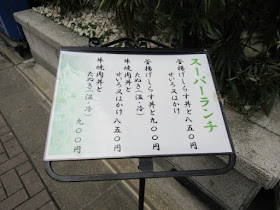 スーパーランチ
釜揚げしらす丼と
せいろ又はかけ 八五〇円
釜揚げしらす丼と
たぬき(温・冷) 九〇〇円
牛焼肉丼と
せいろ又はかけ 八五〇円
牛焼肉丼と
たぬき(温・冷) 九〇〇円